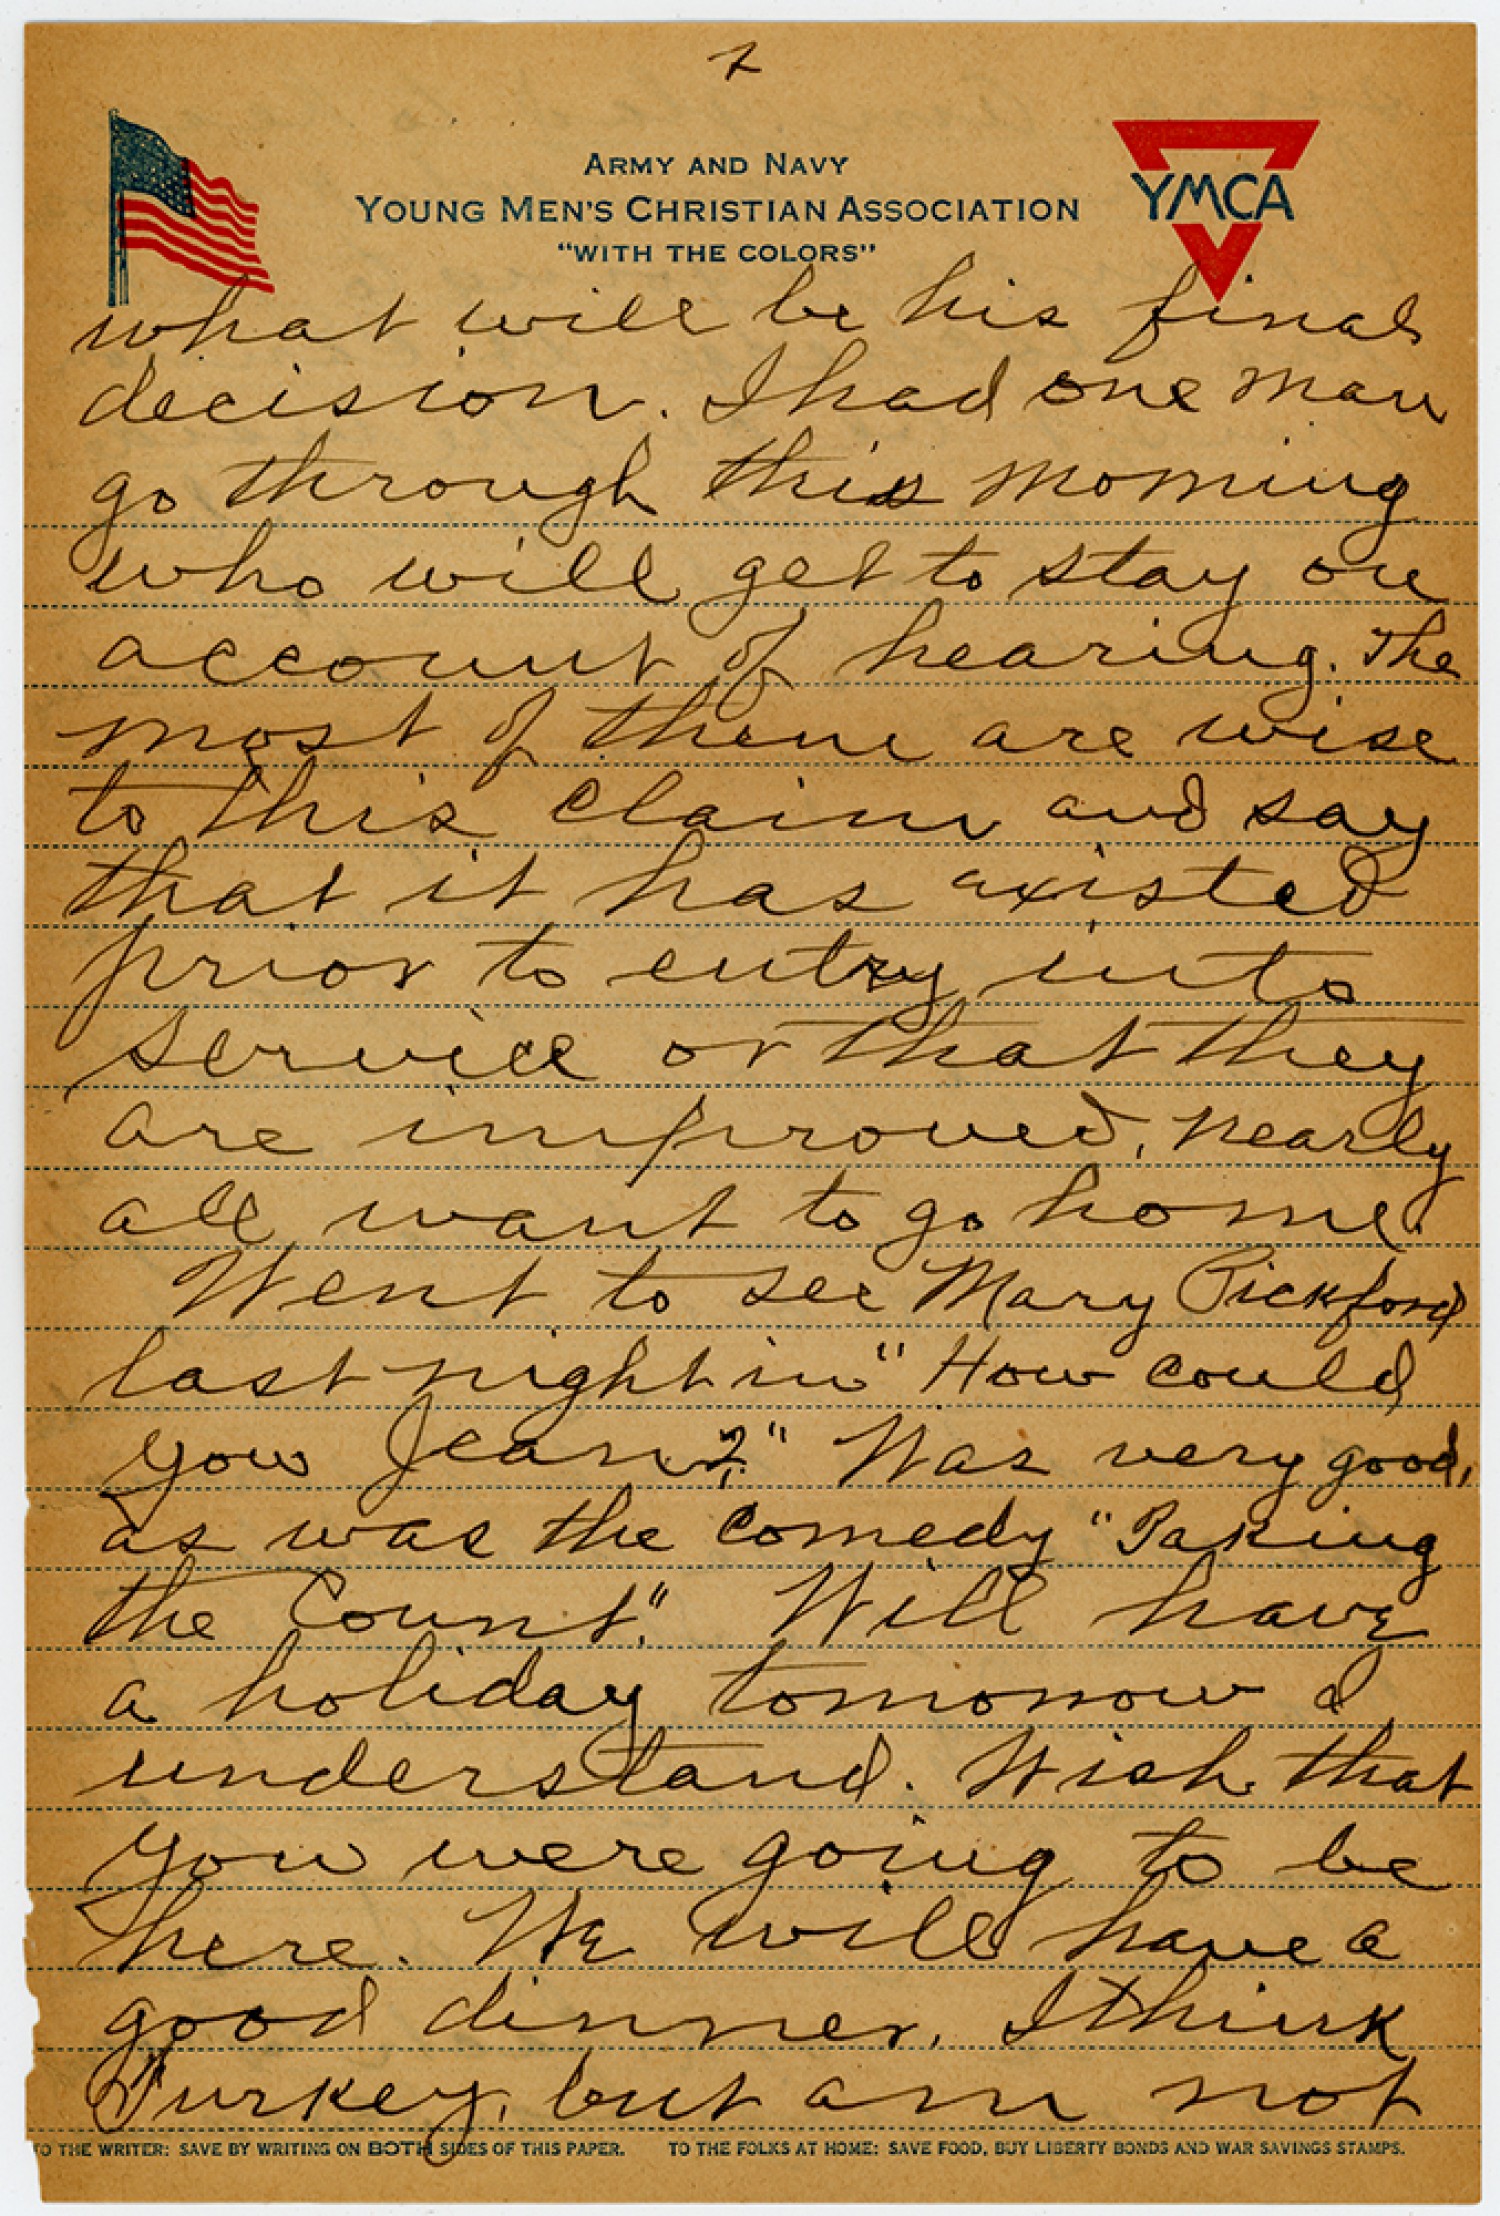 2
ARMY AND NAVY
YOUNG MEN'S CHRISTIAN ASSOCIATION
"WITH THE COLORS"
YMCA
what will be his final
decision. I had one man
go through this morning
who will get to stay on
account of hearing. The
most of them are wise
to this claim and say
that it has existed
prior to entry into
service or that they
are improved. Nearly
all want to go home.
Went to see Mary Pickford
last night in "How Could
you Jean?" Was very good,
as was the Comedy "Taking
the Count." Will have
a holiday tomorrow I
understand. Wish that
you were going to be
here. We will have a
good dinner, I think
Turkey, but am not
TO THE WRITER: SAVE BY WRITING ON BOTH SIDES OF THIS PAPER. TO THE FOLKS AT HOME: SAVE FOOD, BUY LIBERTY BONDS AND WAR SAVINGS STAMPS.